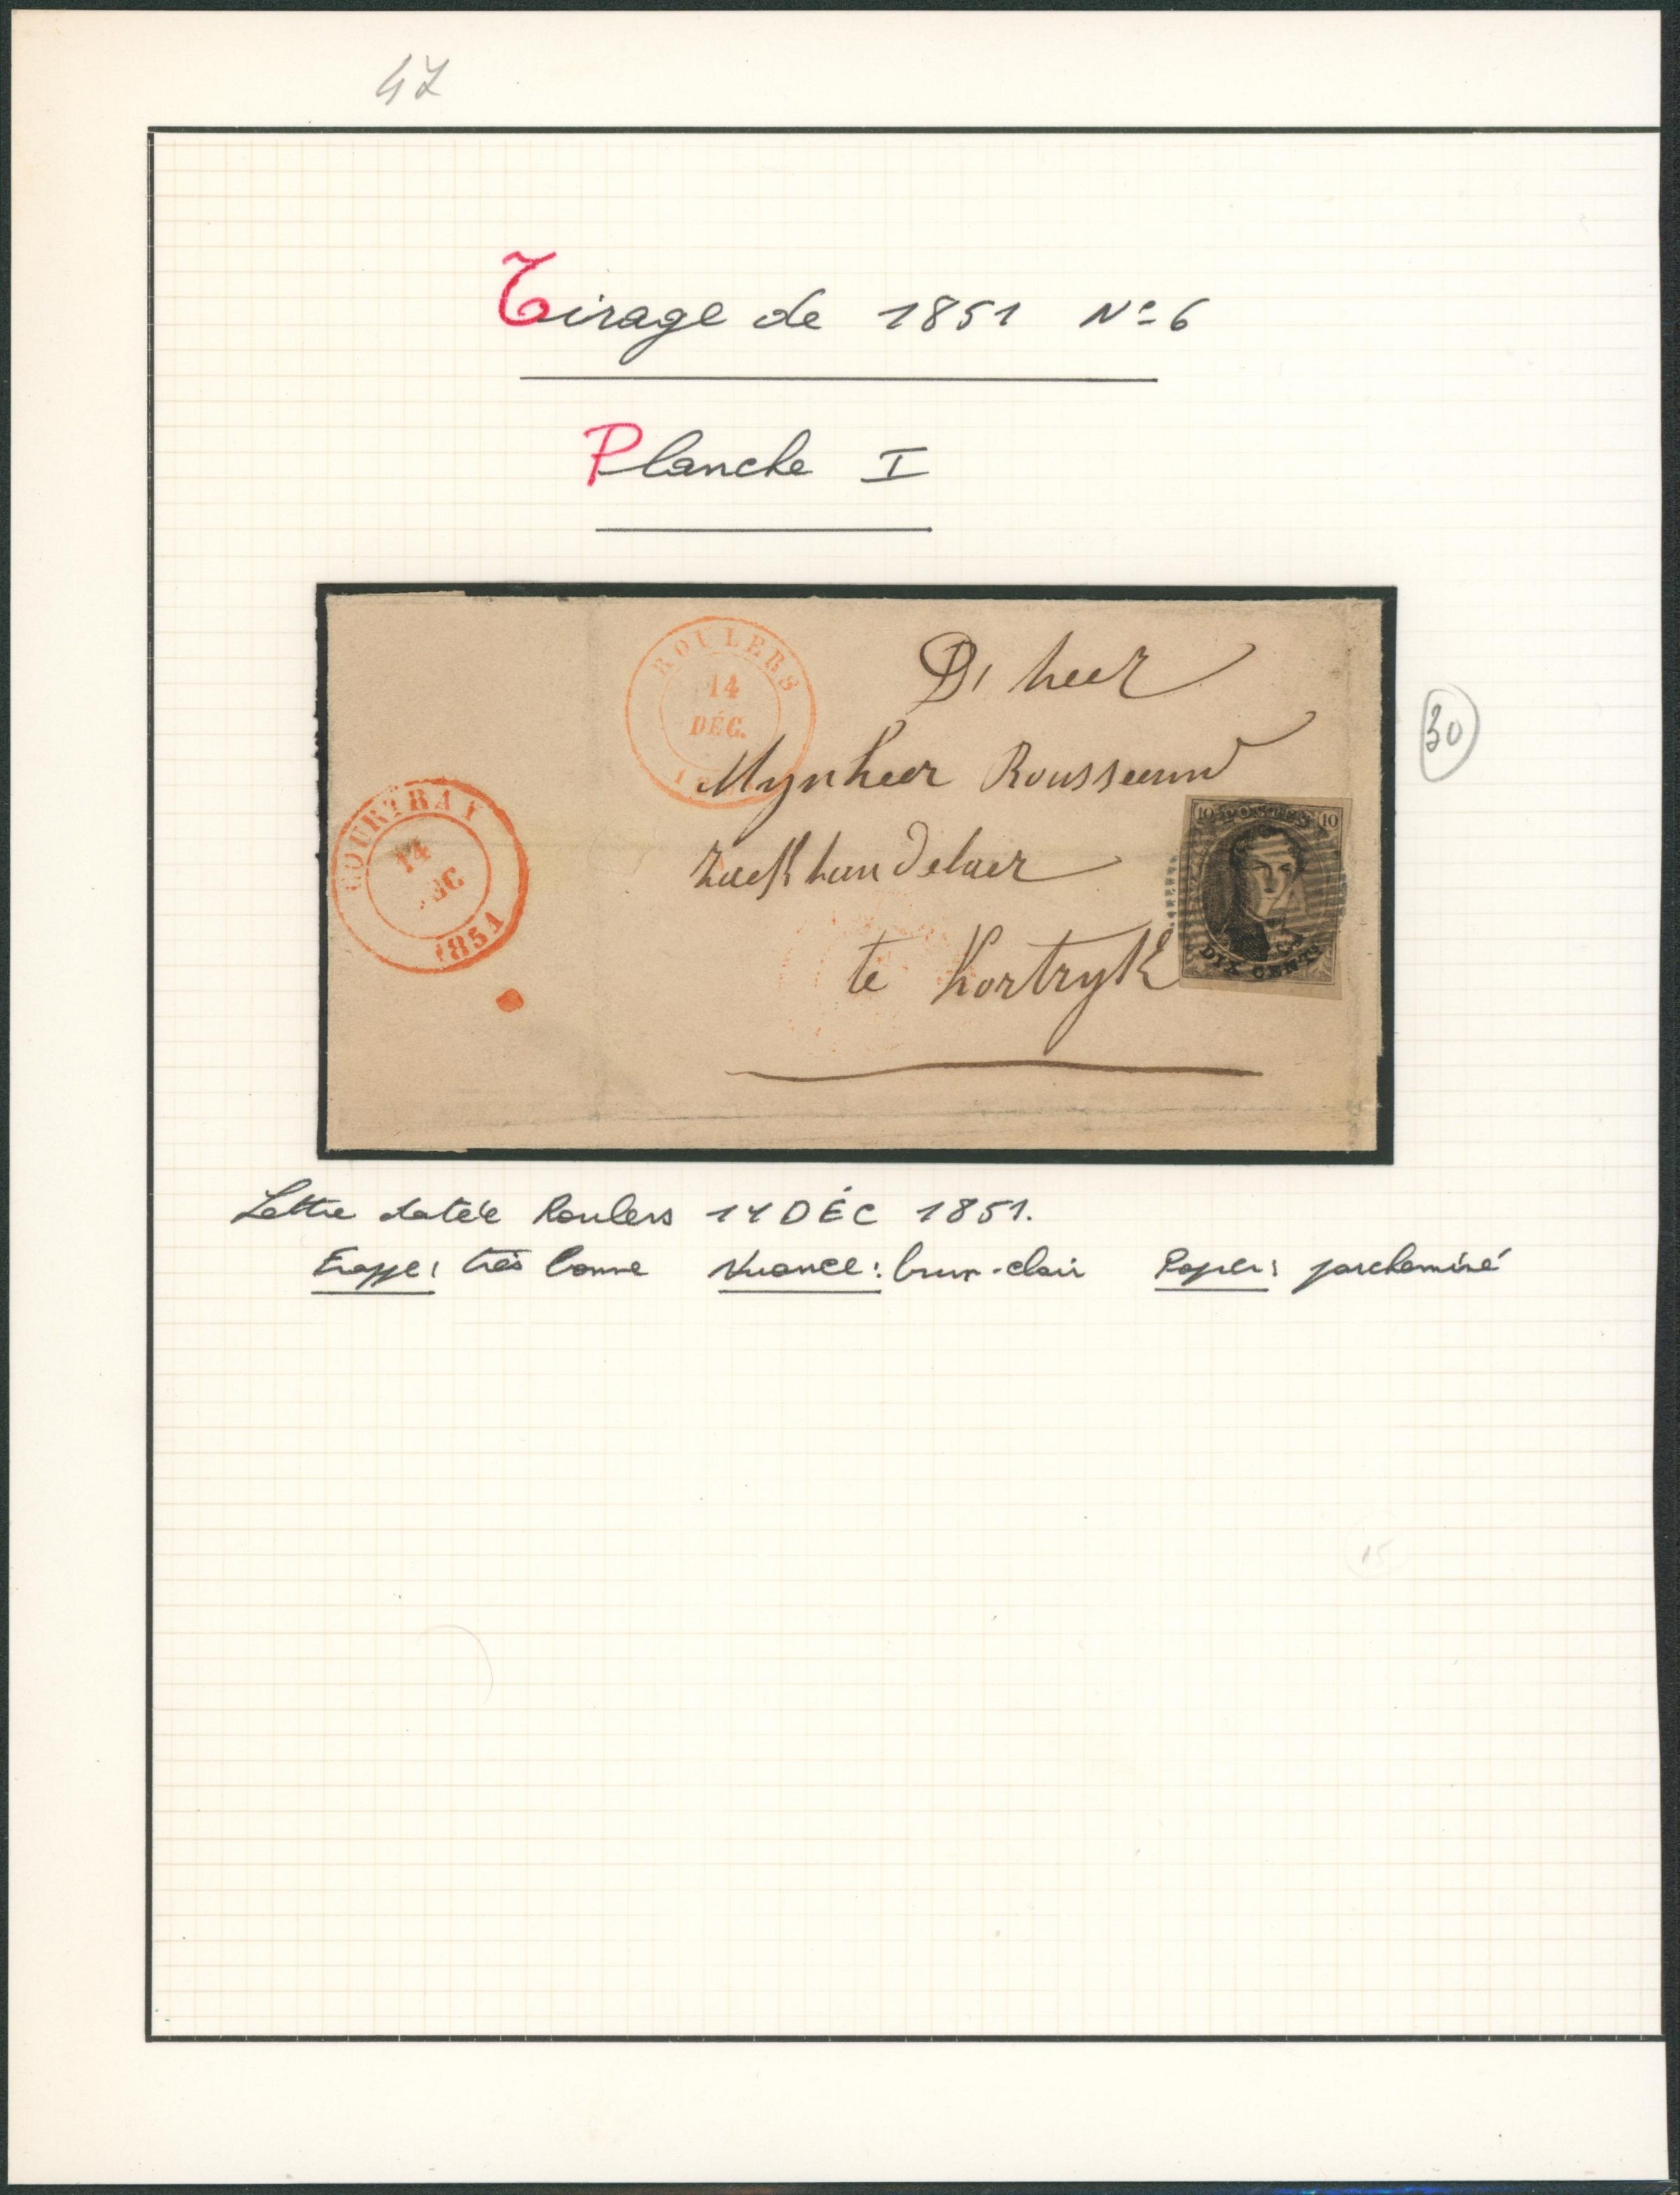 47
Tirage de 1851 N° 6
Planche I
ROULERS
14
DÉC.
D' heer
Mynheer Rousseeuw
zaekhandelaer
te Kortryk
COURTRAY
14
DEC
1851
10 POSTES 10
DIX CENTS
30
Lettre datée Roulers 14 DÉC 1851.
Frappe: très bonne Nuance: brun-clair Papier: parcheminé
15